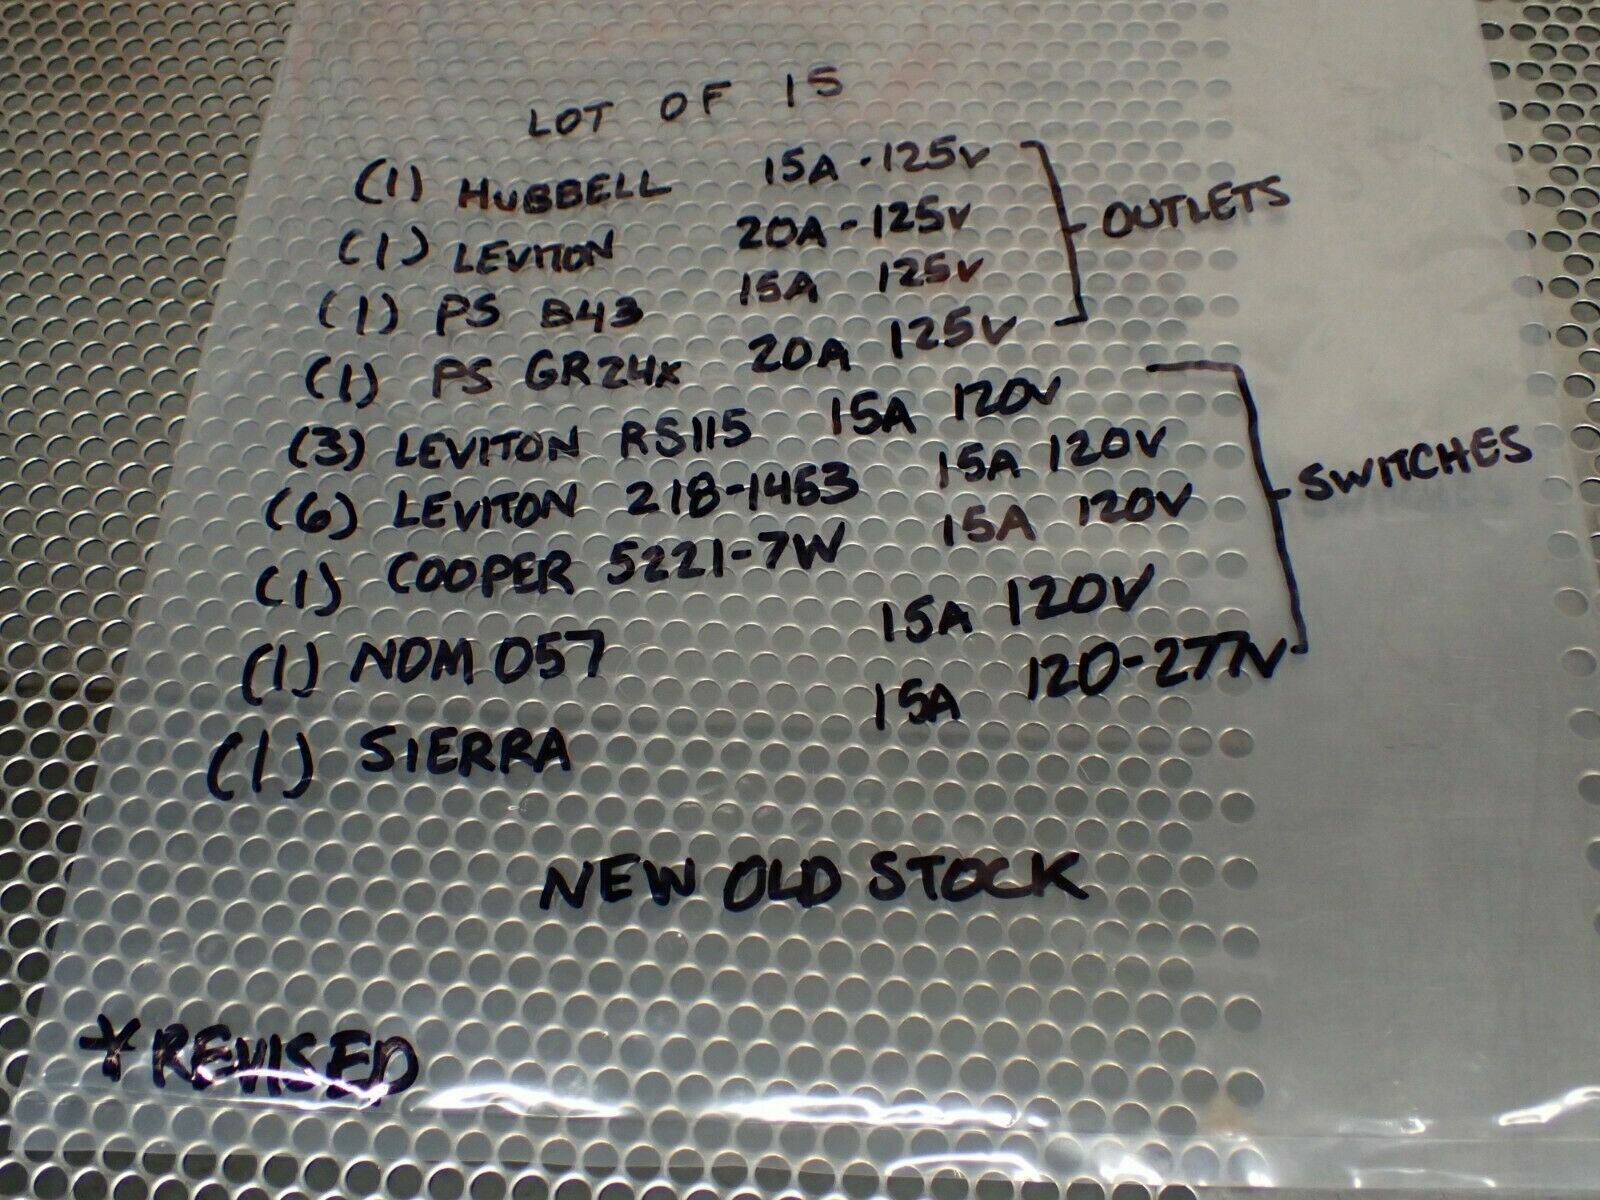 LOT OF 15
(1) HUBBELL 15A - 125V
(1) LEVITON 20A - 125V
(1) PS B43 15A 125V
OUTLETS
(1) PS GR24X 20A 125V
(3) LEVITON RS115 15A 120V
(6) LEVITON 218-1453 15A 120V
(1) COOPER 5221-7W 15A 120V
(1) NOM 057 15A 120V
(1) SIERRA 15A 120-277V
SWITCHES
NEW OLD STOCK
* REVISED